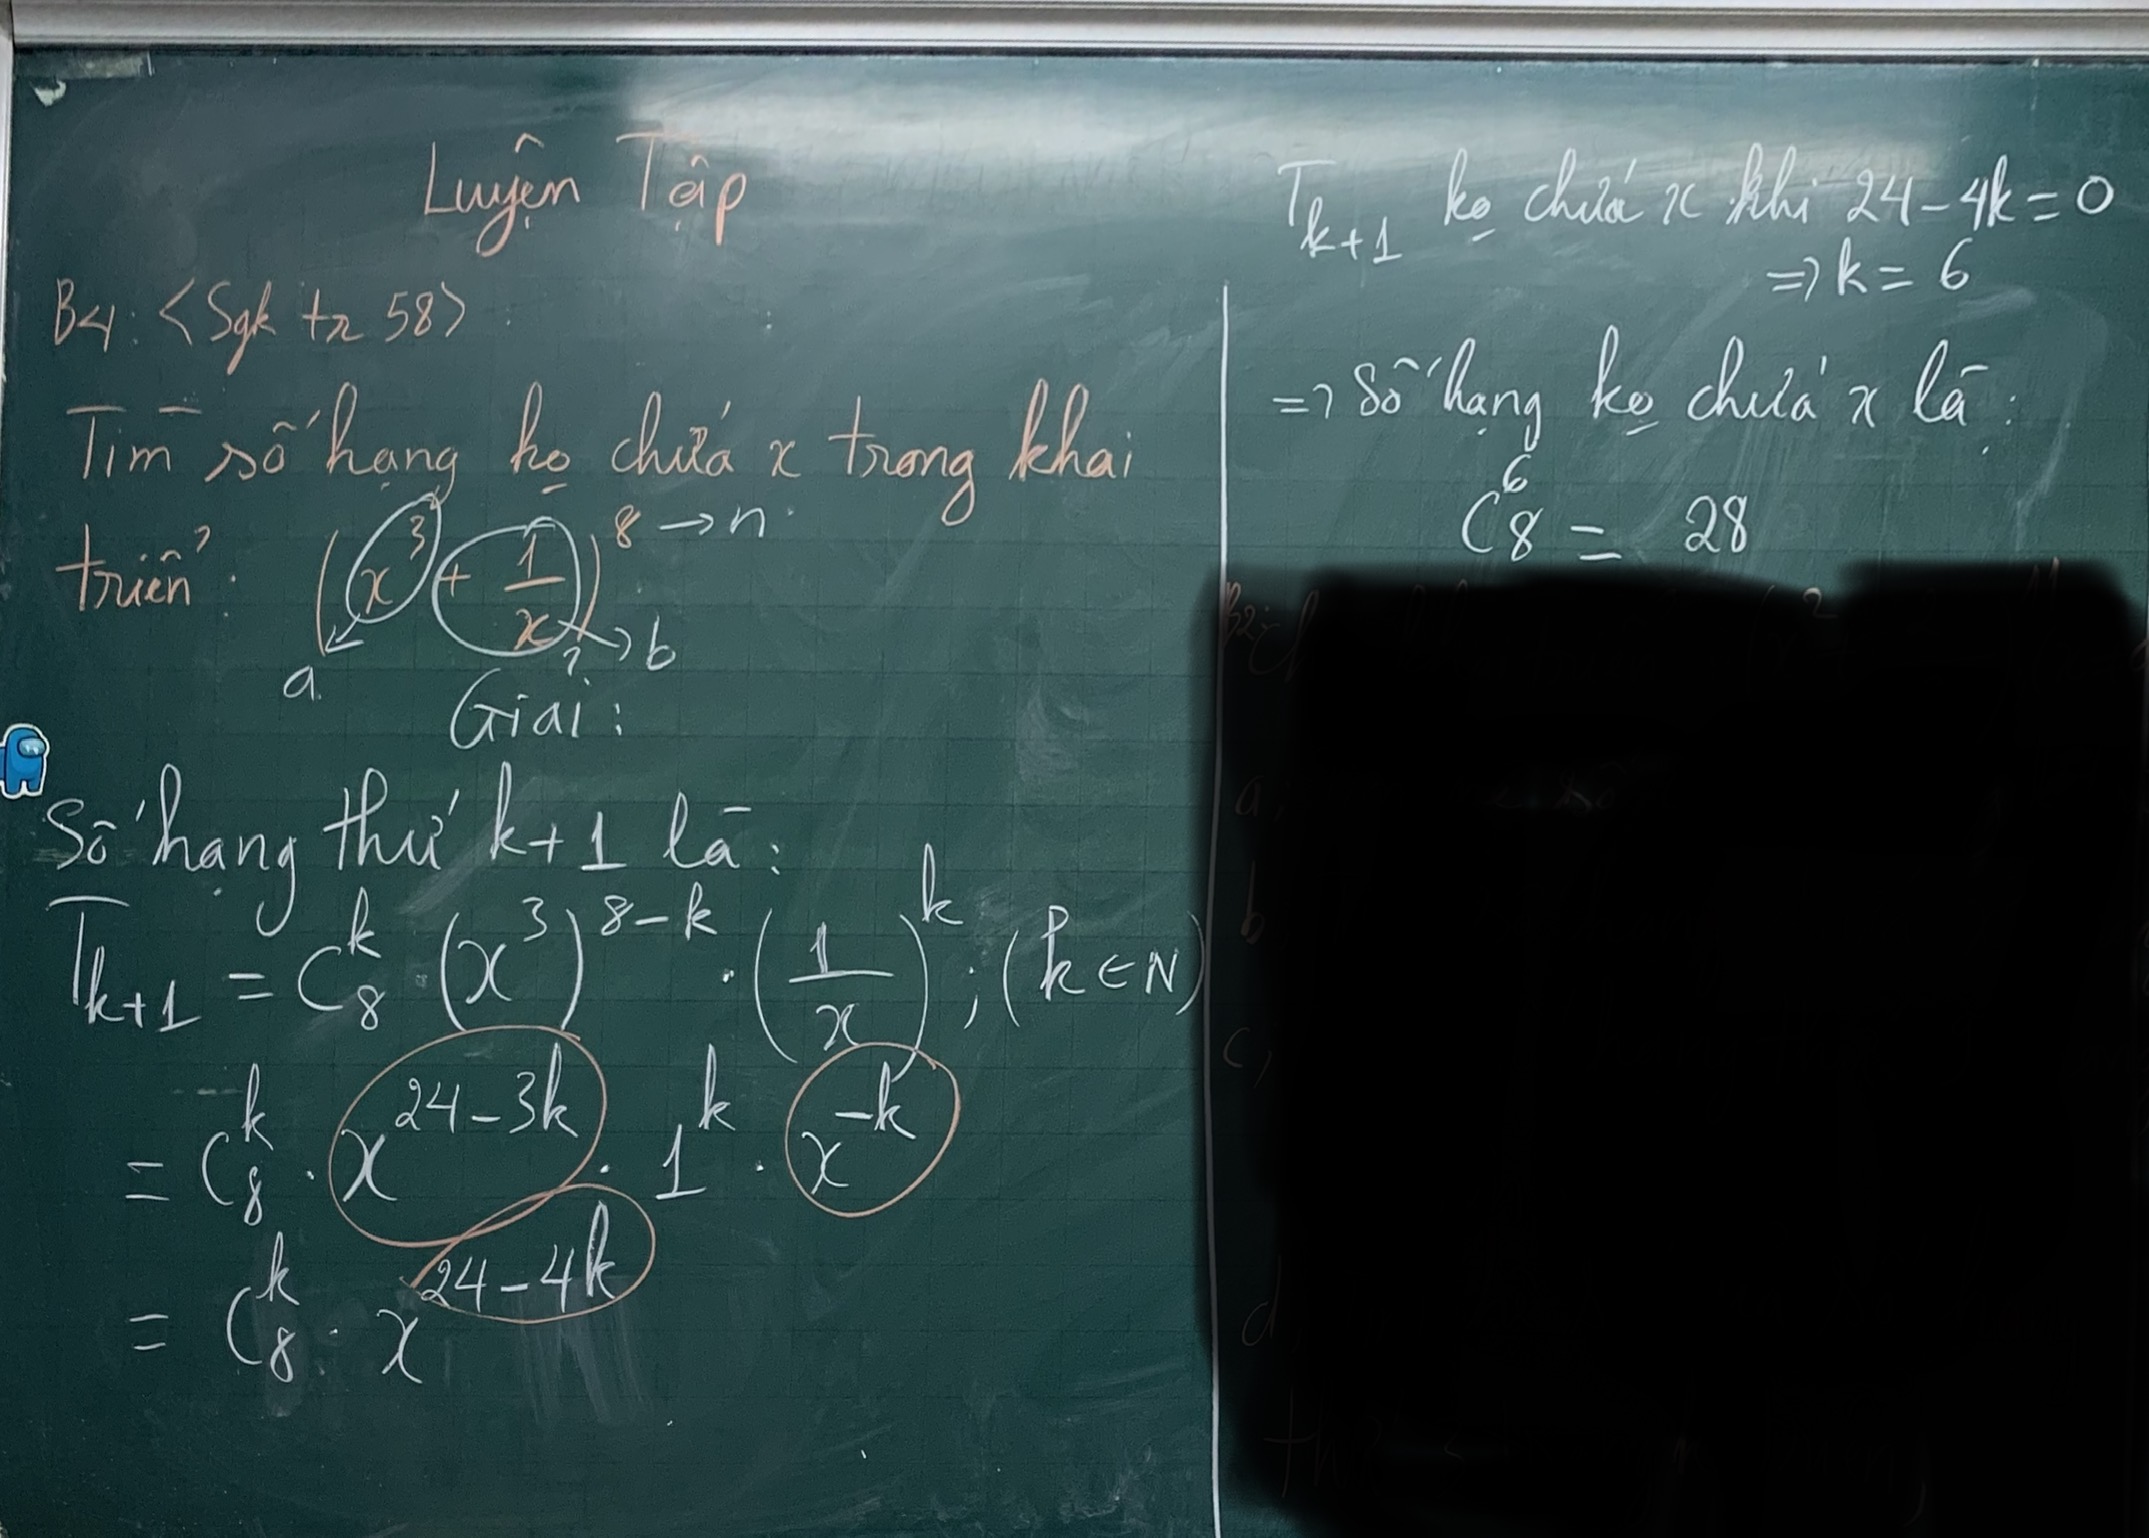 Luyện Tập
B4: <Sgk tr 58>
Tìm số hạng ko chứa x trong khai
triển: (x³ + 1/x)⁸ → n
a b
Giải:
Số hạng thứ k+1 là:
T_{k+1} = C₈ᵏ . (x³)^{8-k} . (1/x)^k ; (k ∈ N)
= C₈ᵏ . x^{24-3k} . 1^k . x^{-k}
= C₈ᵏ . x^{24-4k}
T_{k+1} ko chứa x khi 24 - 4k = 0
=> k = 6
=> Số hạng ko chứa x là:
C₈⁶ = 28
a,
b
c,
d,